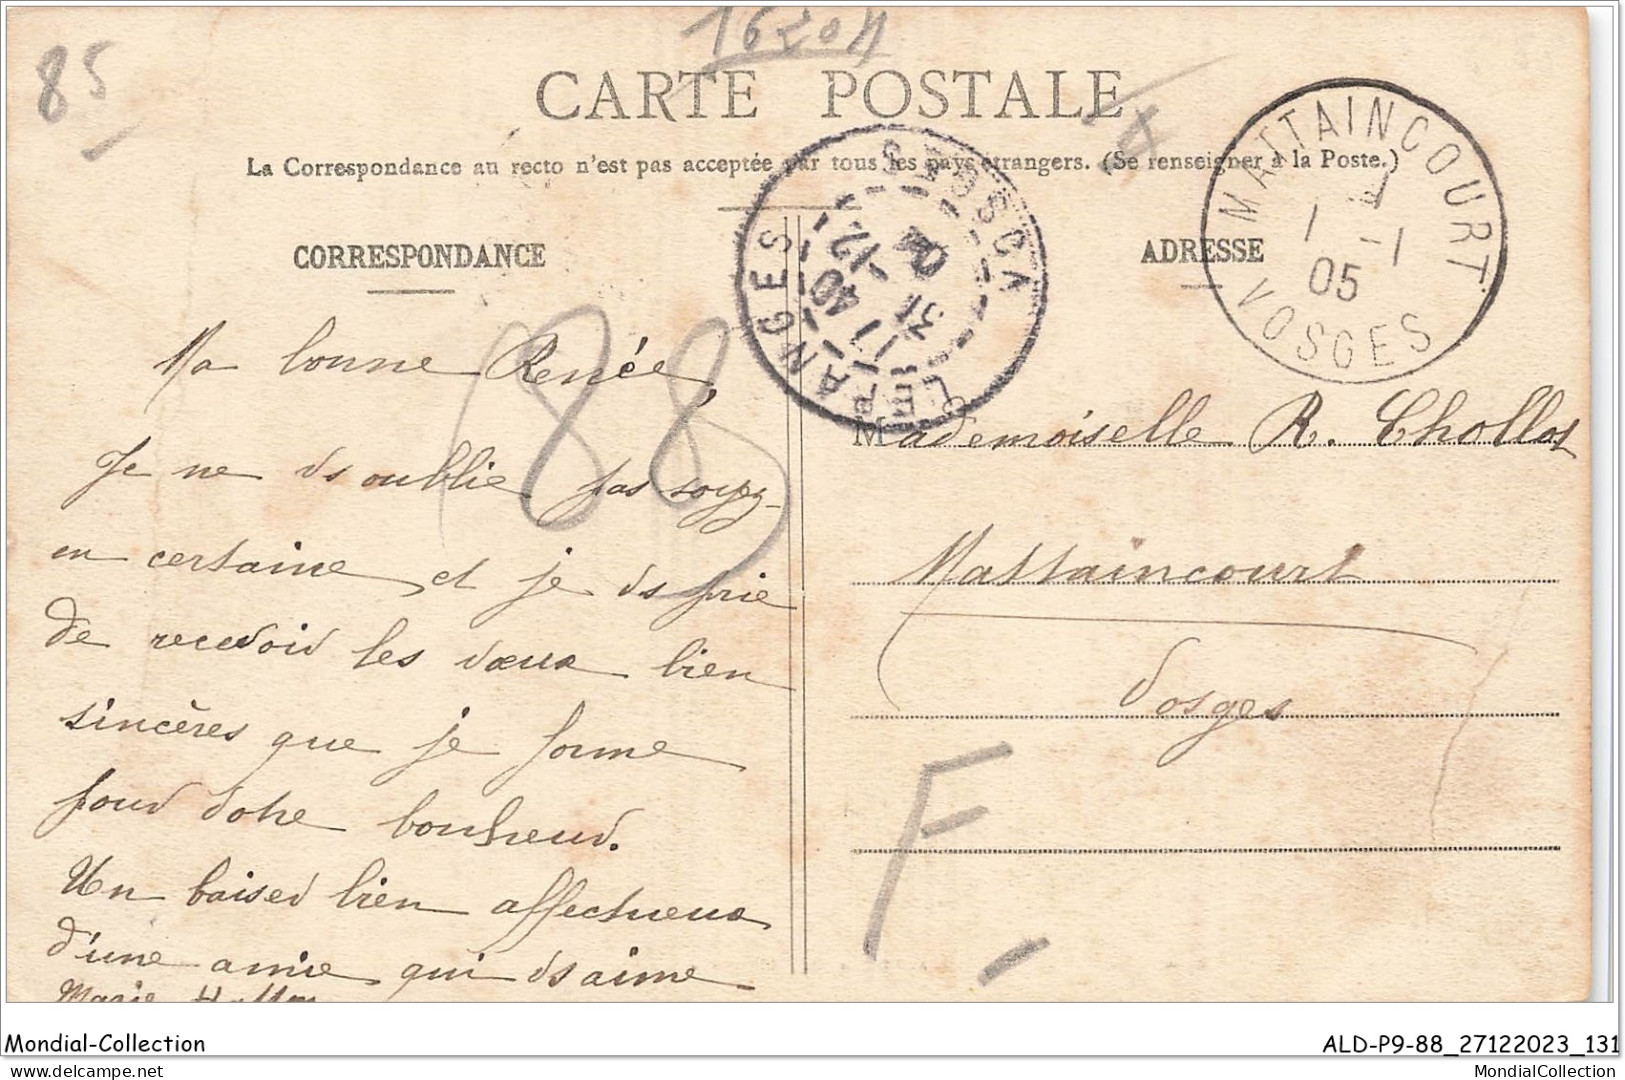 85
1620A
CARTE POSTALE
La Correspondance au recto n'est pas acceptée par tous les pays étrangers. (Se renseigner à la Poste.)
CORRESPONDANCE
ADRESSE
LÉPANGES VOSGES
17 40
31 -12
04
MATTAINCOURT
1 -1
05
VOSGES
(88)
Ma bonne Renée,
Je ne vs oublie pas soyez-
en certaine et je vs prie
de recevoir les vœux bien
sincères que je forme
pour votre bonheur.
Un baiser bien affectueux
d'une amie qui vs aime
Marie
Mademoiselle R. Chollot
Mattaincourt
Vosges
F.
Mondial-Collection
ALD-P9-88_27122023_131
MondialCollection